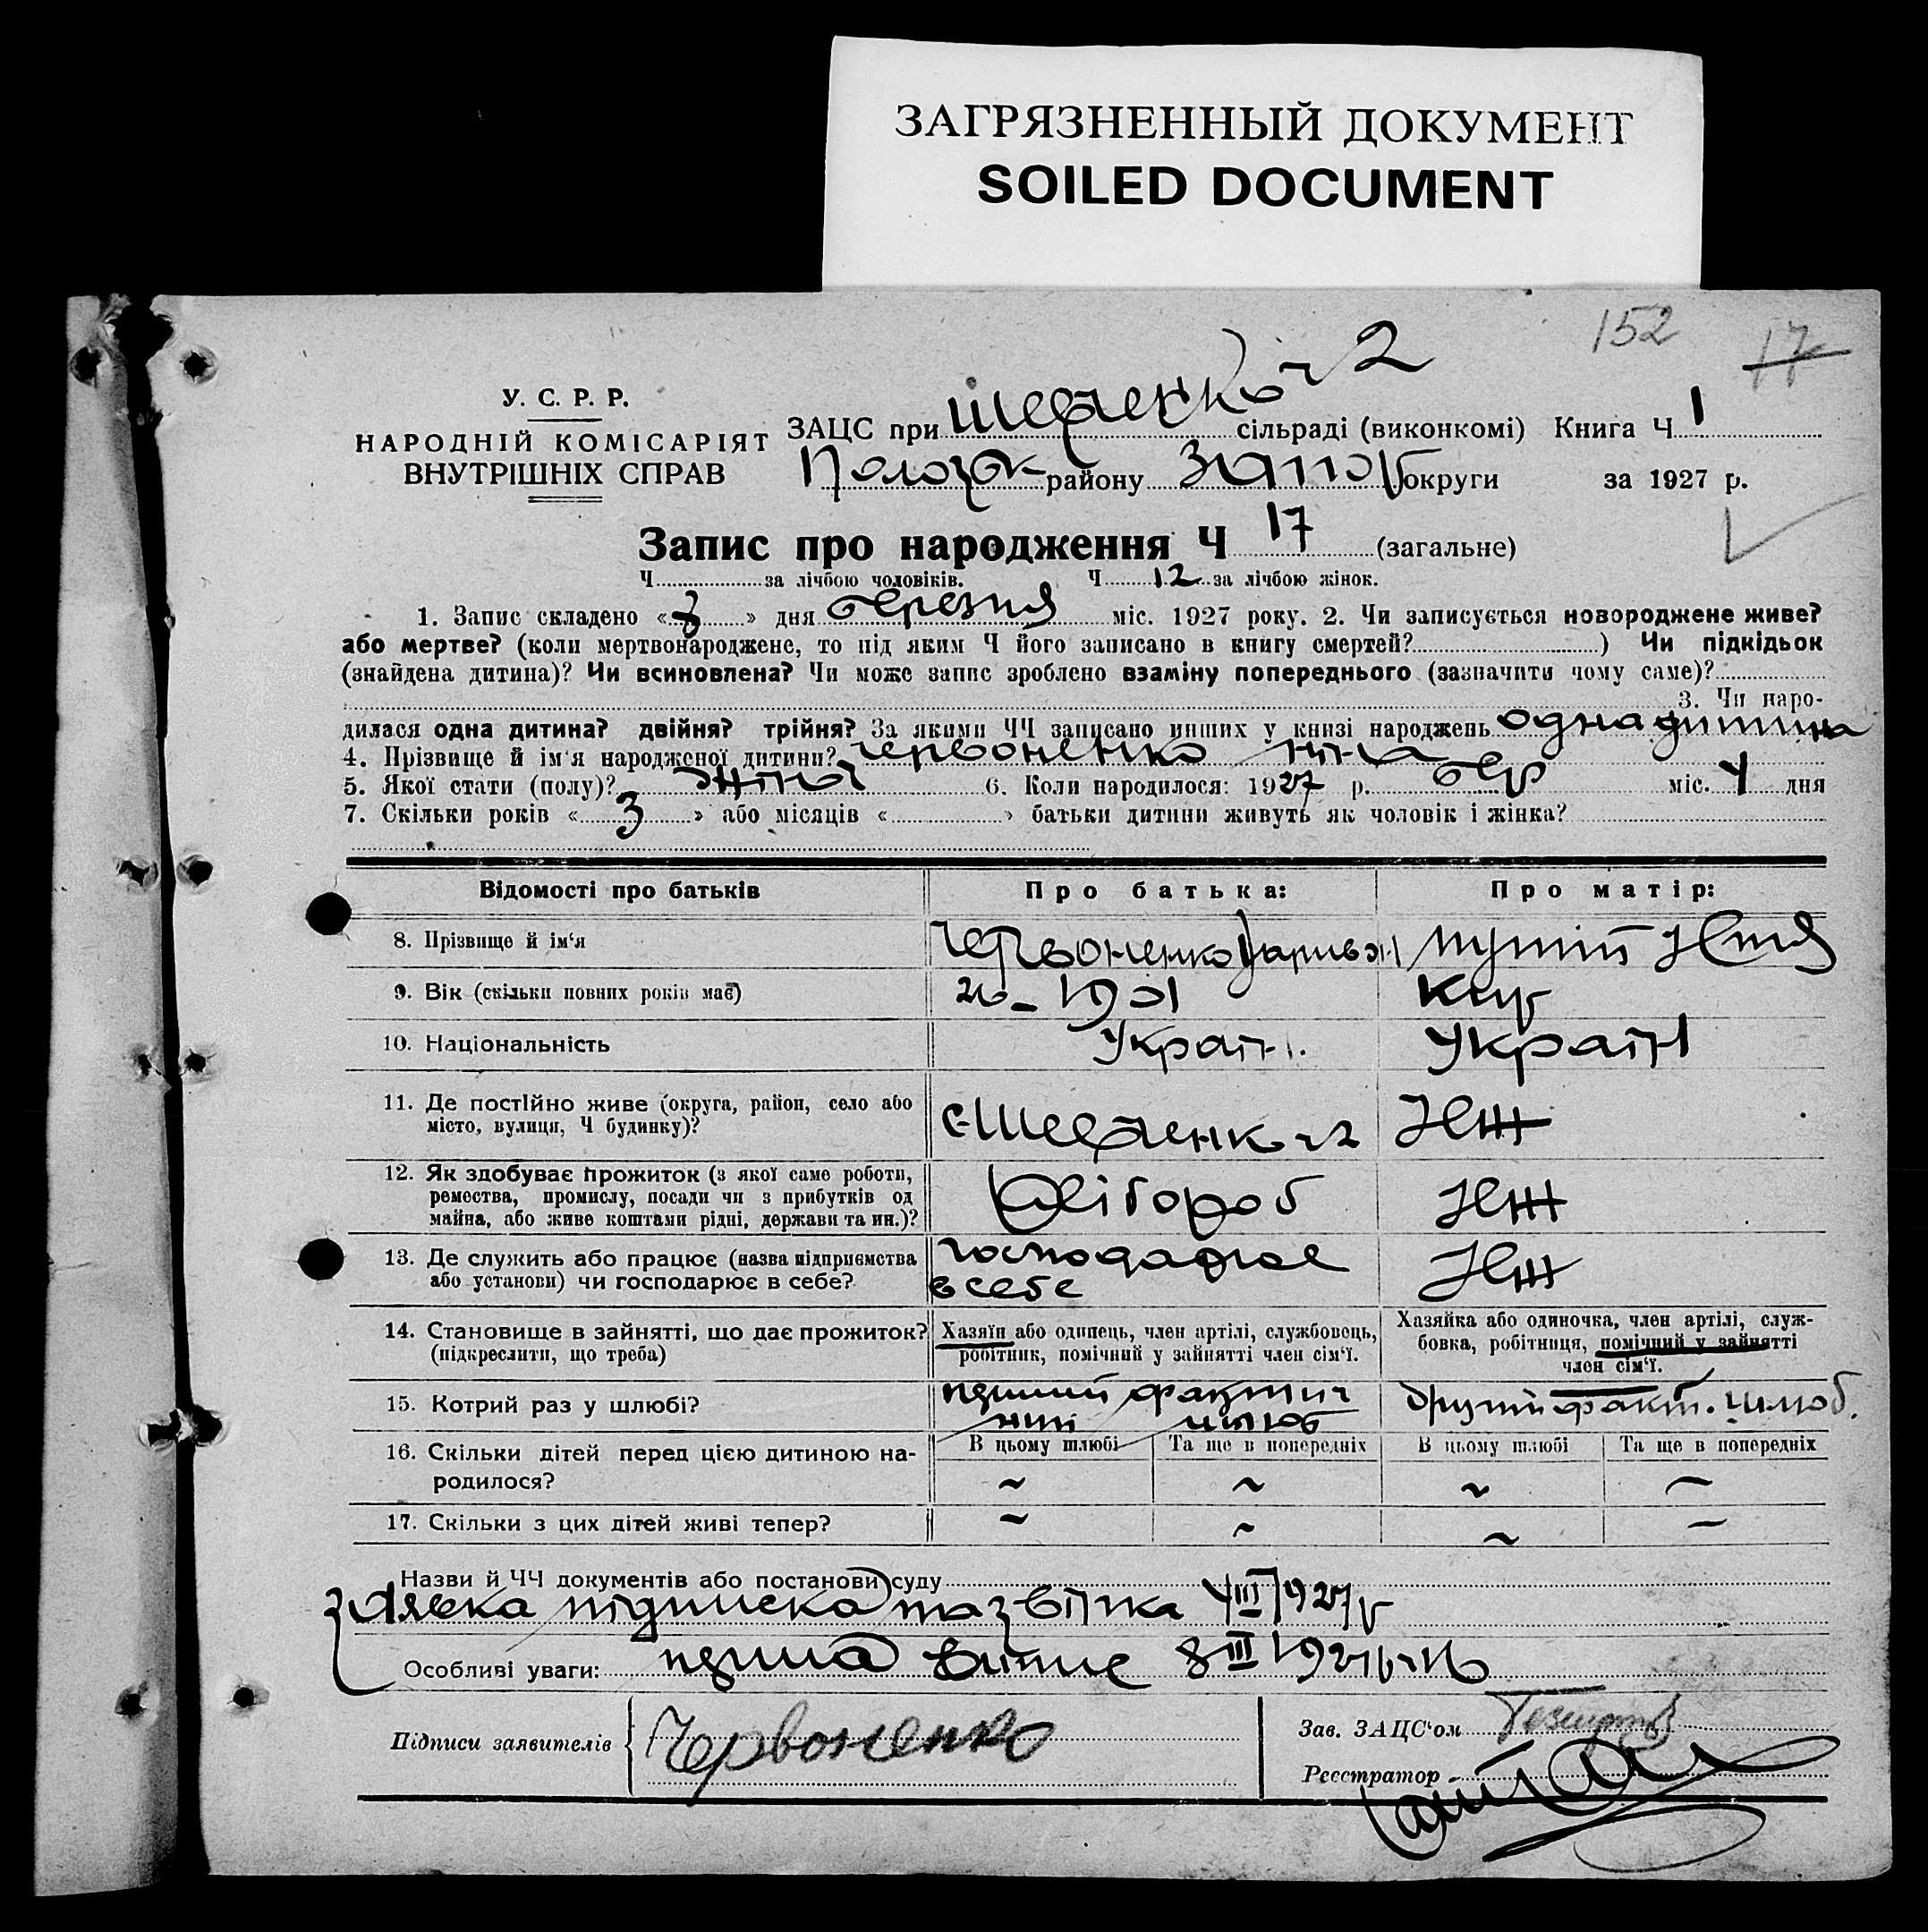 ЗАГРЯЗНЕННЫЙ ДОКУМЕНТ
SOILED DOCUMENT
152 17
У. С. Р. Р.
НАРОДНІЙ КОМІСАРІЯТ
ВНУТРІШНІХ СПРАВ
ЗАЦС при Шевченко ч 2 сільраді (виконкомі) Книга Ч 1
району Запор округи за 1927 р.
Запис про народження Ч 17 (загальне)
Ч за лічбою чоловіків. Ч 12 за лічбою жінок.
1. Запис складено « 8 » дня березня міс. 1927 року. 2. Чи записується новороджене живе?
або мертве? (коли мертвонароджене, то під яким Ч його записано в книгу смертей? ) Чи підкідьок
(знайдена дитина)? Чи всиновлена? Чи може запис зроблено взаміну попереднього (зазначити чому саме)?
3. Чи наро-
дилася одна дитина? двійня? трійня? За якими ЧЧ записано инших у книзі народжень одна дитина
4. Прізвище й ім'я народженої дитини? Червоненко
5. Якої стати (полу)? жіноч 6. Коли народилося: 1927 р. бер міс. 4 дня
7. Скільки років « 3 » або місяців « » батьки дитини живуть як чоловік і жінка?
Відомості про батьків Про батька: Про матір:
8. Прізвище й ім'я Червоненко
9. Вік (скільки повних років має) 26 - 1901
10. Національність Україн. Україн
11. Де постійно живе (округа, район, село або
місто, вулиця, Ч будинку)?
с. Шевченко ч 2
12. Як здобуває прожиток (з якої саме роботи,
ремества, промислу, посади чи з прибутків од
майна, або живе коштами рідні, держави та ин.)?
Хлібороб
13. Де служить або працює (назва підприємства
або установи) чи господарює в себе?
господарює
в себе
14. Становище в зайнятті, що дає прожиток?
(підкреслити, що треба)
Хазяїн або одинець, член артілі, службовець,
робітник, помічний у зайнятті член сім'ї.
Хазяйка або одиночка, член артілі, служ-
бовка, робітниця, помічний у зайнятті
член сім'ї.
15. Котрий раз у шлюбі? шлюб другий факт. шлюб.
16. Скільки дітей перед цією дитиною на-
родилося?
В цьому шлюбі Та ще в попередніх В цьому шлюбі Та ще в попередніх
~ ~ ~ ~
17. Скільки з цих дітей живі тепер? ~ ~ ~ ~
Назви й ЧЧ документів або постанови суду
Заявка підписка та 4 III 1927 р
Особливі уваги: 8 III 1927 р
Підписи заявителів Червоненко
Зав. ЗАЦС'ом
Реєстратор